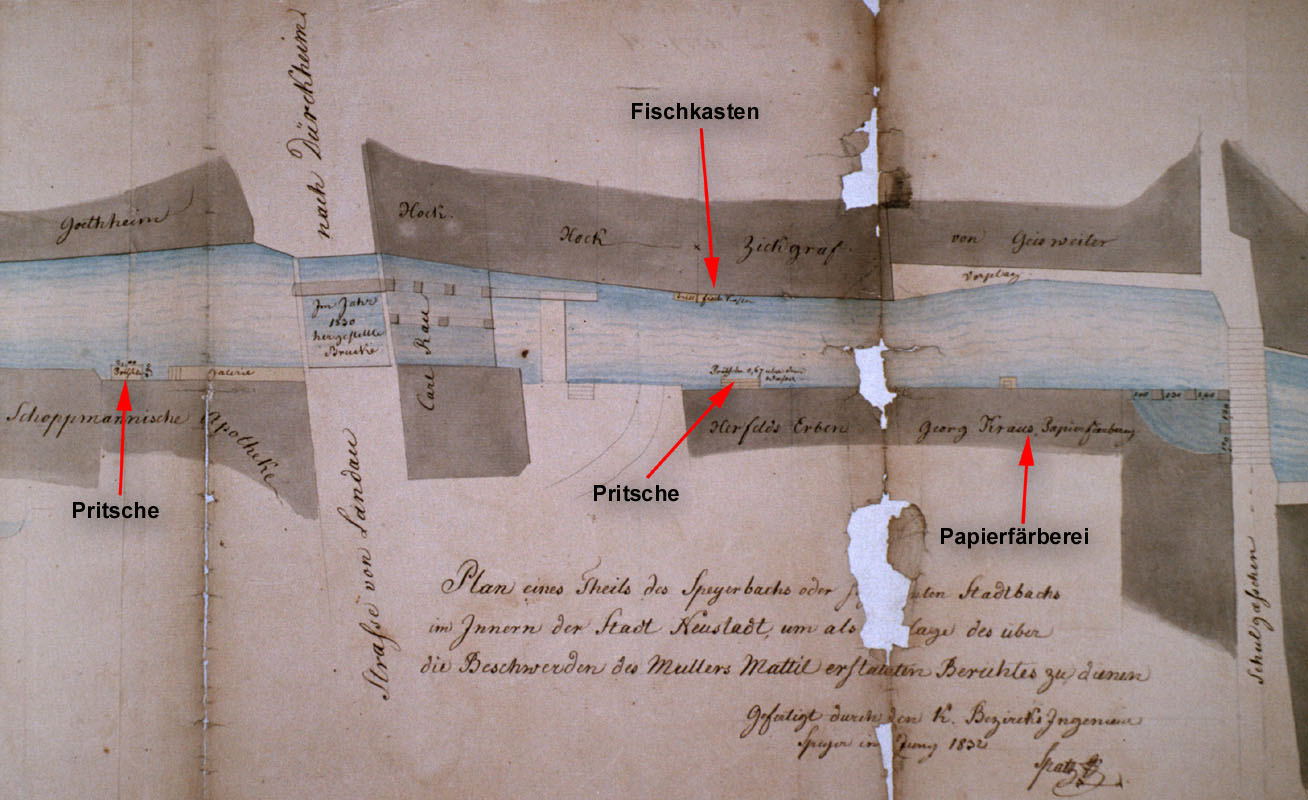 nach Dürckheim
Fischkasten
Goethheim
Hock.
Hock
Zickgraf.
von Geisweiler
Vorplaz
Im Jahr
1830
hergestellte
Brucke
Carl Rau
Galerie
Pritsche 0,67 uber dem
Schoppmannische Apotheke
Herfelds Erben
Georg Kraus, Papierfärberey
Pritsche
Pritsche
Papierfärberei
Strasse von Landau
Schulgasschen
Plan eines Theils des Speyerbachs oder Stadtbachs
im Innern der Stadt Neustadt, um als des über
die Beschwerden des Mullers Mattil erstatteten Berichtes zu dienen
Gefertigt durch den K. Bezircks Ingenieur
Speyer im Juny 1832
Spatz